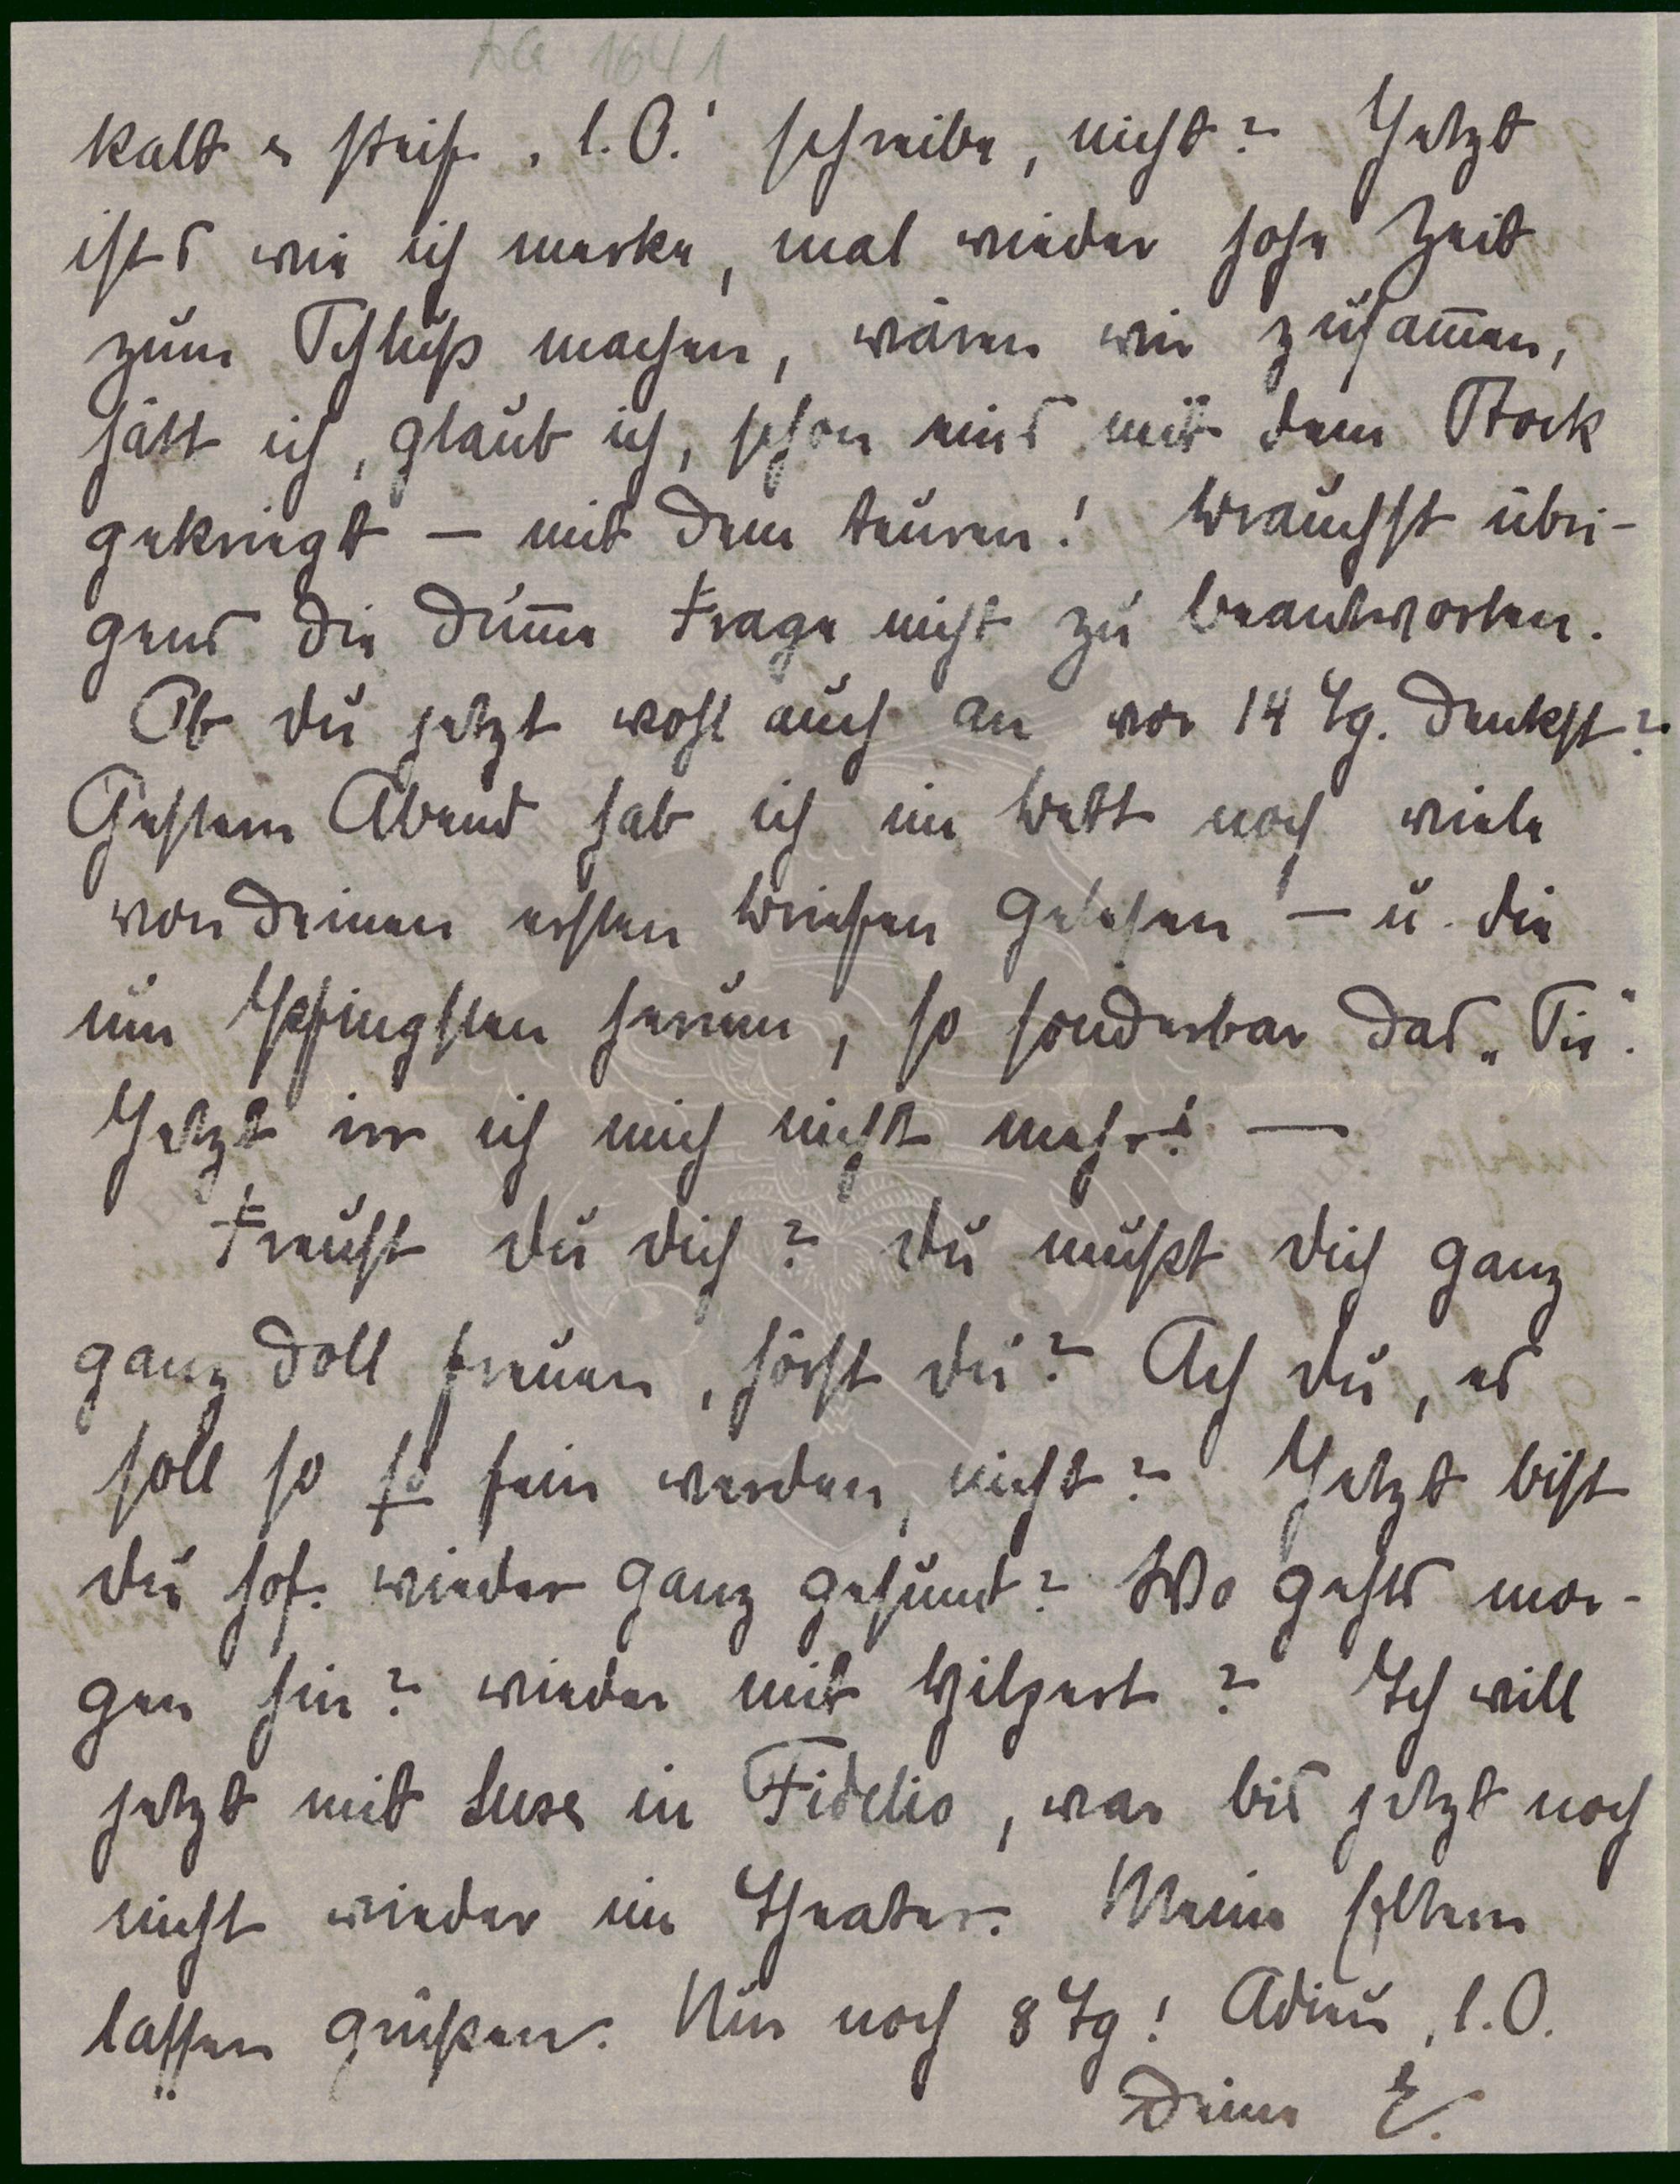 kalt u steif „l. O.“ schreibe, nicht? Jetzt
ists wie ich merke, mal wieder hohe Zeit
zum Schluß machen, wären wir zusam̅en,
hätt ich, glaub ich, schon eins mit dem Stock
gekriegt – mit dem teuren! Brauchst übri-
gens die dum̅e Frage nicht zu beantworten.
Ob du jetzt wohl auch an vor 14 Tg. denkst?
Gestern Abend hab ich im Bett noch viele
von deinen ersten Briefen gelesen – u. die
um Pfingsten herum, so sonderbar das „Sie“.
Jetzt irr ich mich nicht mehr! –
Freust du dich? du mußt dich ganz
ganz doll freuen, hörst du? Ach du, es
soll so so fein werden, nicht? Jetzt bist
du hof. wieder ganz gesund? Wo gehts mor-
gen hin? wieder mit Hilpert? Ich will
jetzt mit Luse in Fidelio, war bis jetzt noch
nicht wieder im Theater. Meine Eltern
lassen grüßen. Nur noch 8 Tg! Adieu, l. O.
Deine E.